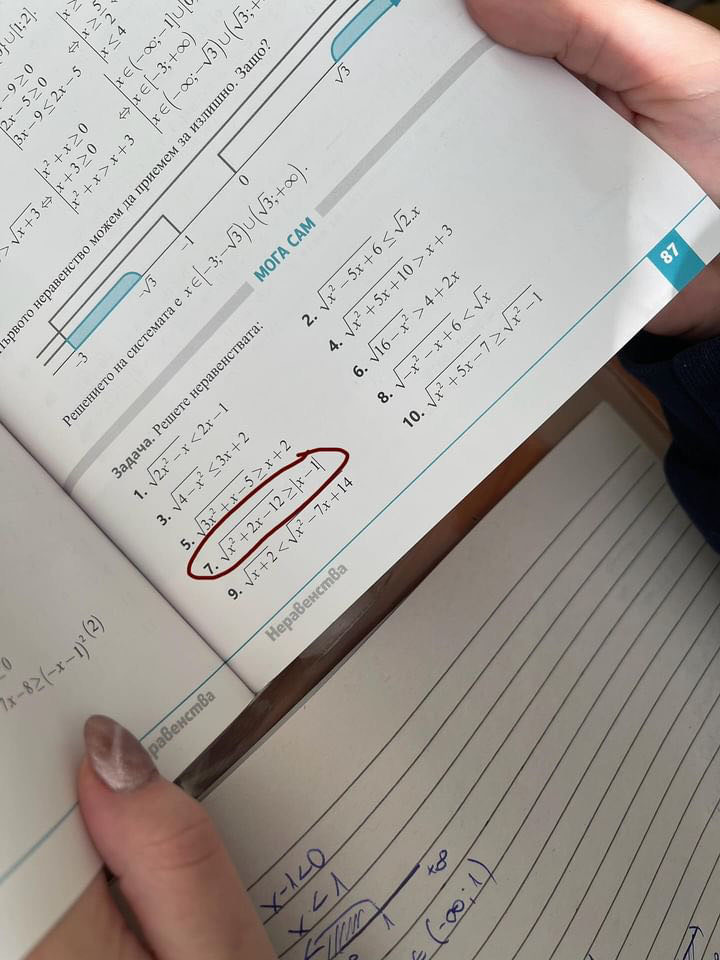 ∪[1;2]
x−9≥0
2x−5≥0
3x−9≤2x−5
⇔
x≤4
x∈(−∞;−1]∪[0
x∈[−3;+∞)
x∈(−∞;−√3)∪(√3;+
>√x+3 ⇔
x²+x≥0
x+3≥0
x²+x>x+3
⇔
ървото неравенство можем да приемем за излишно. Защо?
−3
−√3
−1
0
√3
Решението на системата е x∈[−3;−√3)∪(√3;+∞).
МОГА САМ
Задача. Решете неравенствата:
1. √2x²−x<2x−1
2. √x²−5x+6≤√2.x
3. √4−x²≤3x+2
4. √x²+5x+10>x+3
5. √3x²+x−5≥x+2
6. √16−x²>4+2x
7. √x²+2x−12≥|x−1|
8. √−x²−x+6<√x
9. √x+2<√x²−7x+14
10. √x²+5x−7≥√x²−1
Неравенства
87
≥0
7x−8≥(−x−1)²(2)
равенства
x−1<0
x<1
1
+∞
(−∞;1)